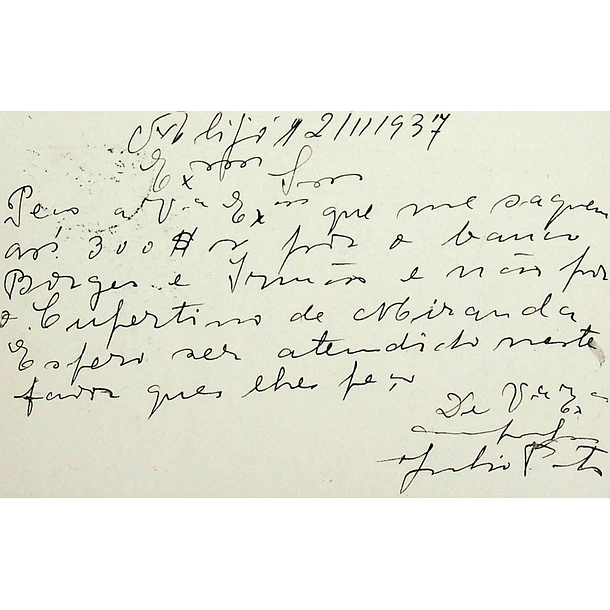 12/11/1937
Exmos Snrs
Peço a V.as Exas que me saquem
as 300$ r por o banco
Borges e Irmão e não por
o Cupertino de Miranda
Espero ser atendido neste
favor ques lhes peço
De V.as Exa
Julio P